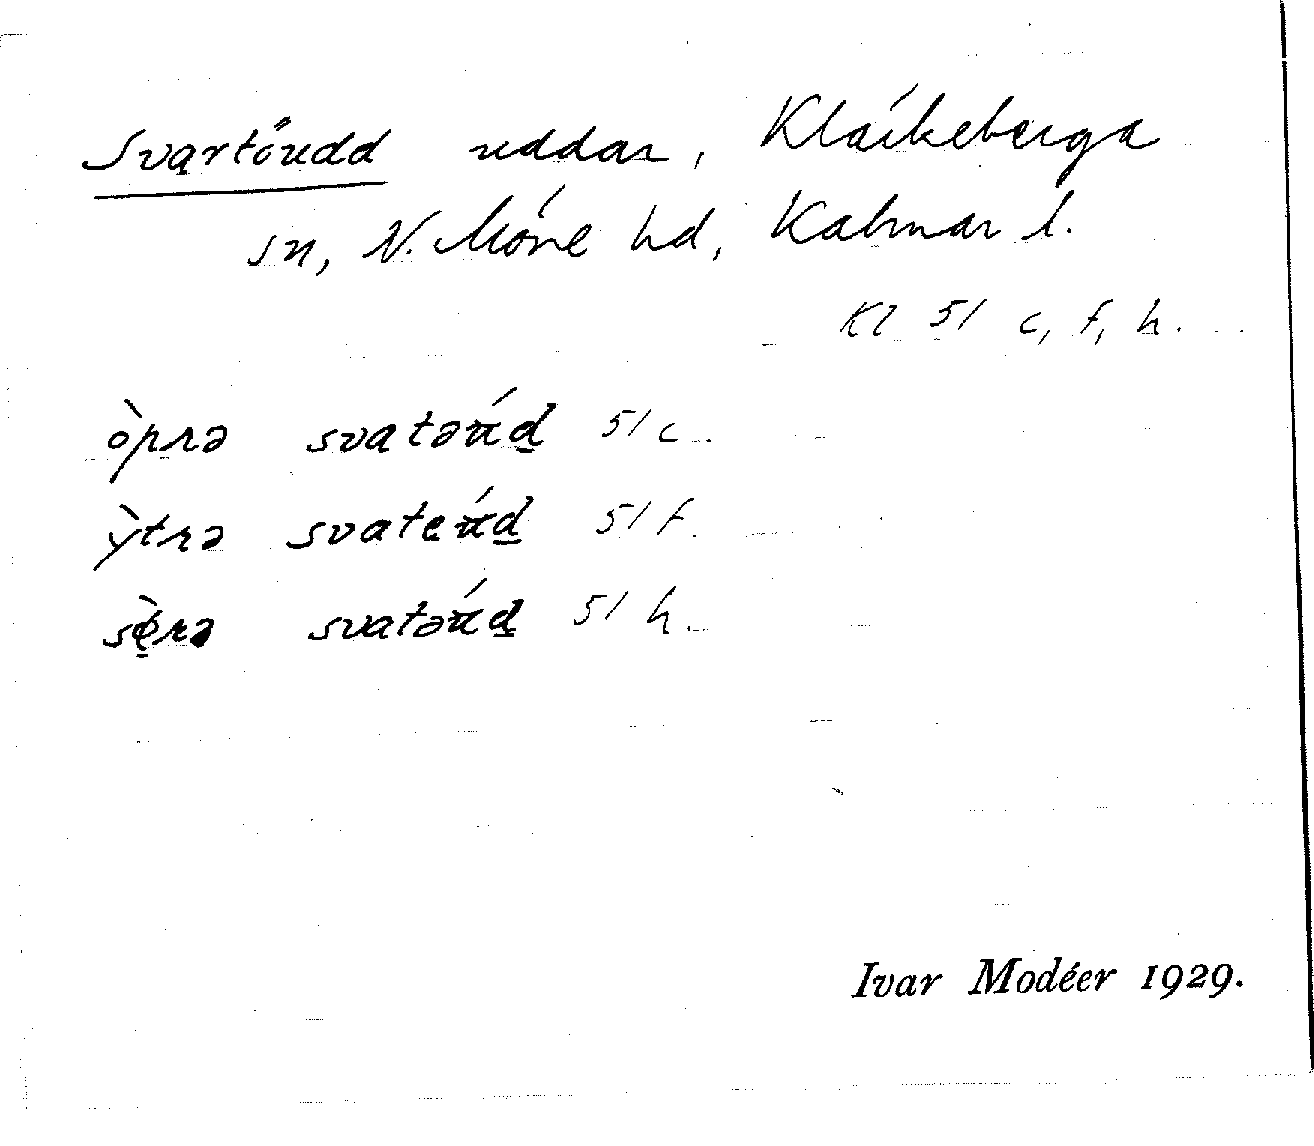 Svartöudd uddar, Kläckeberga
sn, N. Möre hd, Kalmar l.
Kl 51 c, f, h.
òprə svatəúd 51 c.
ỳtrə svateúd 51 f.
sø̀rə svatəúd 51 h.
Ivar Modéer 1929.